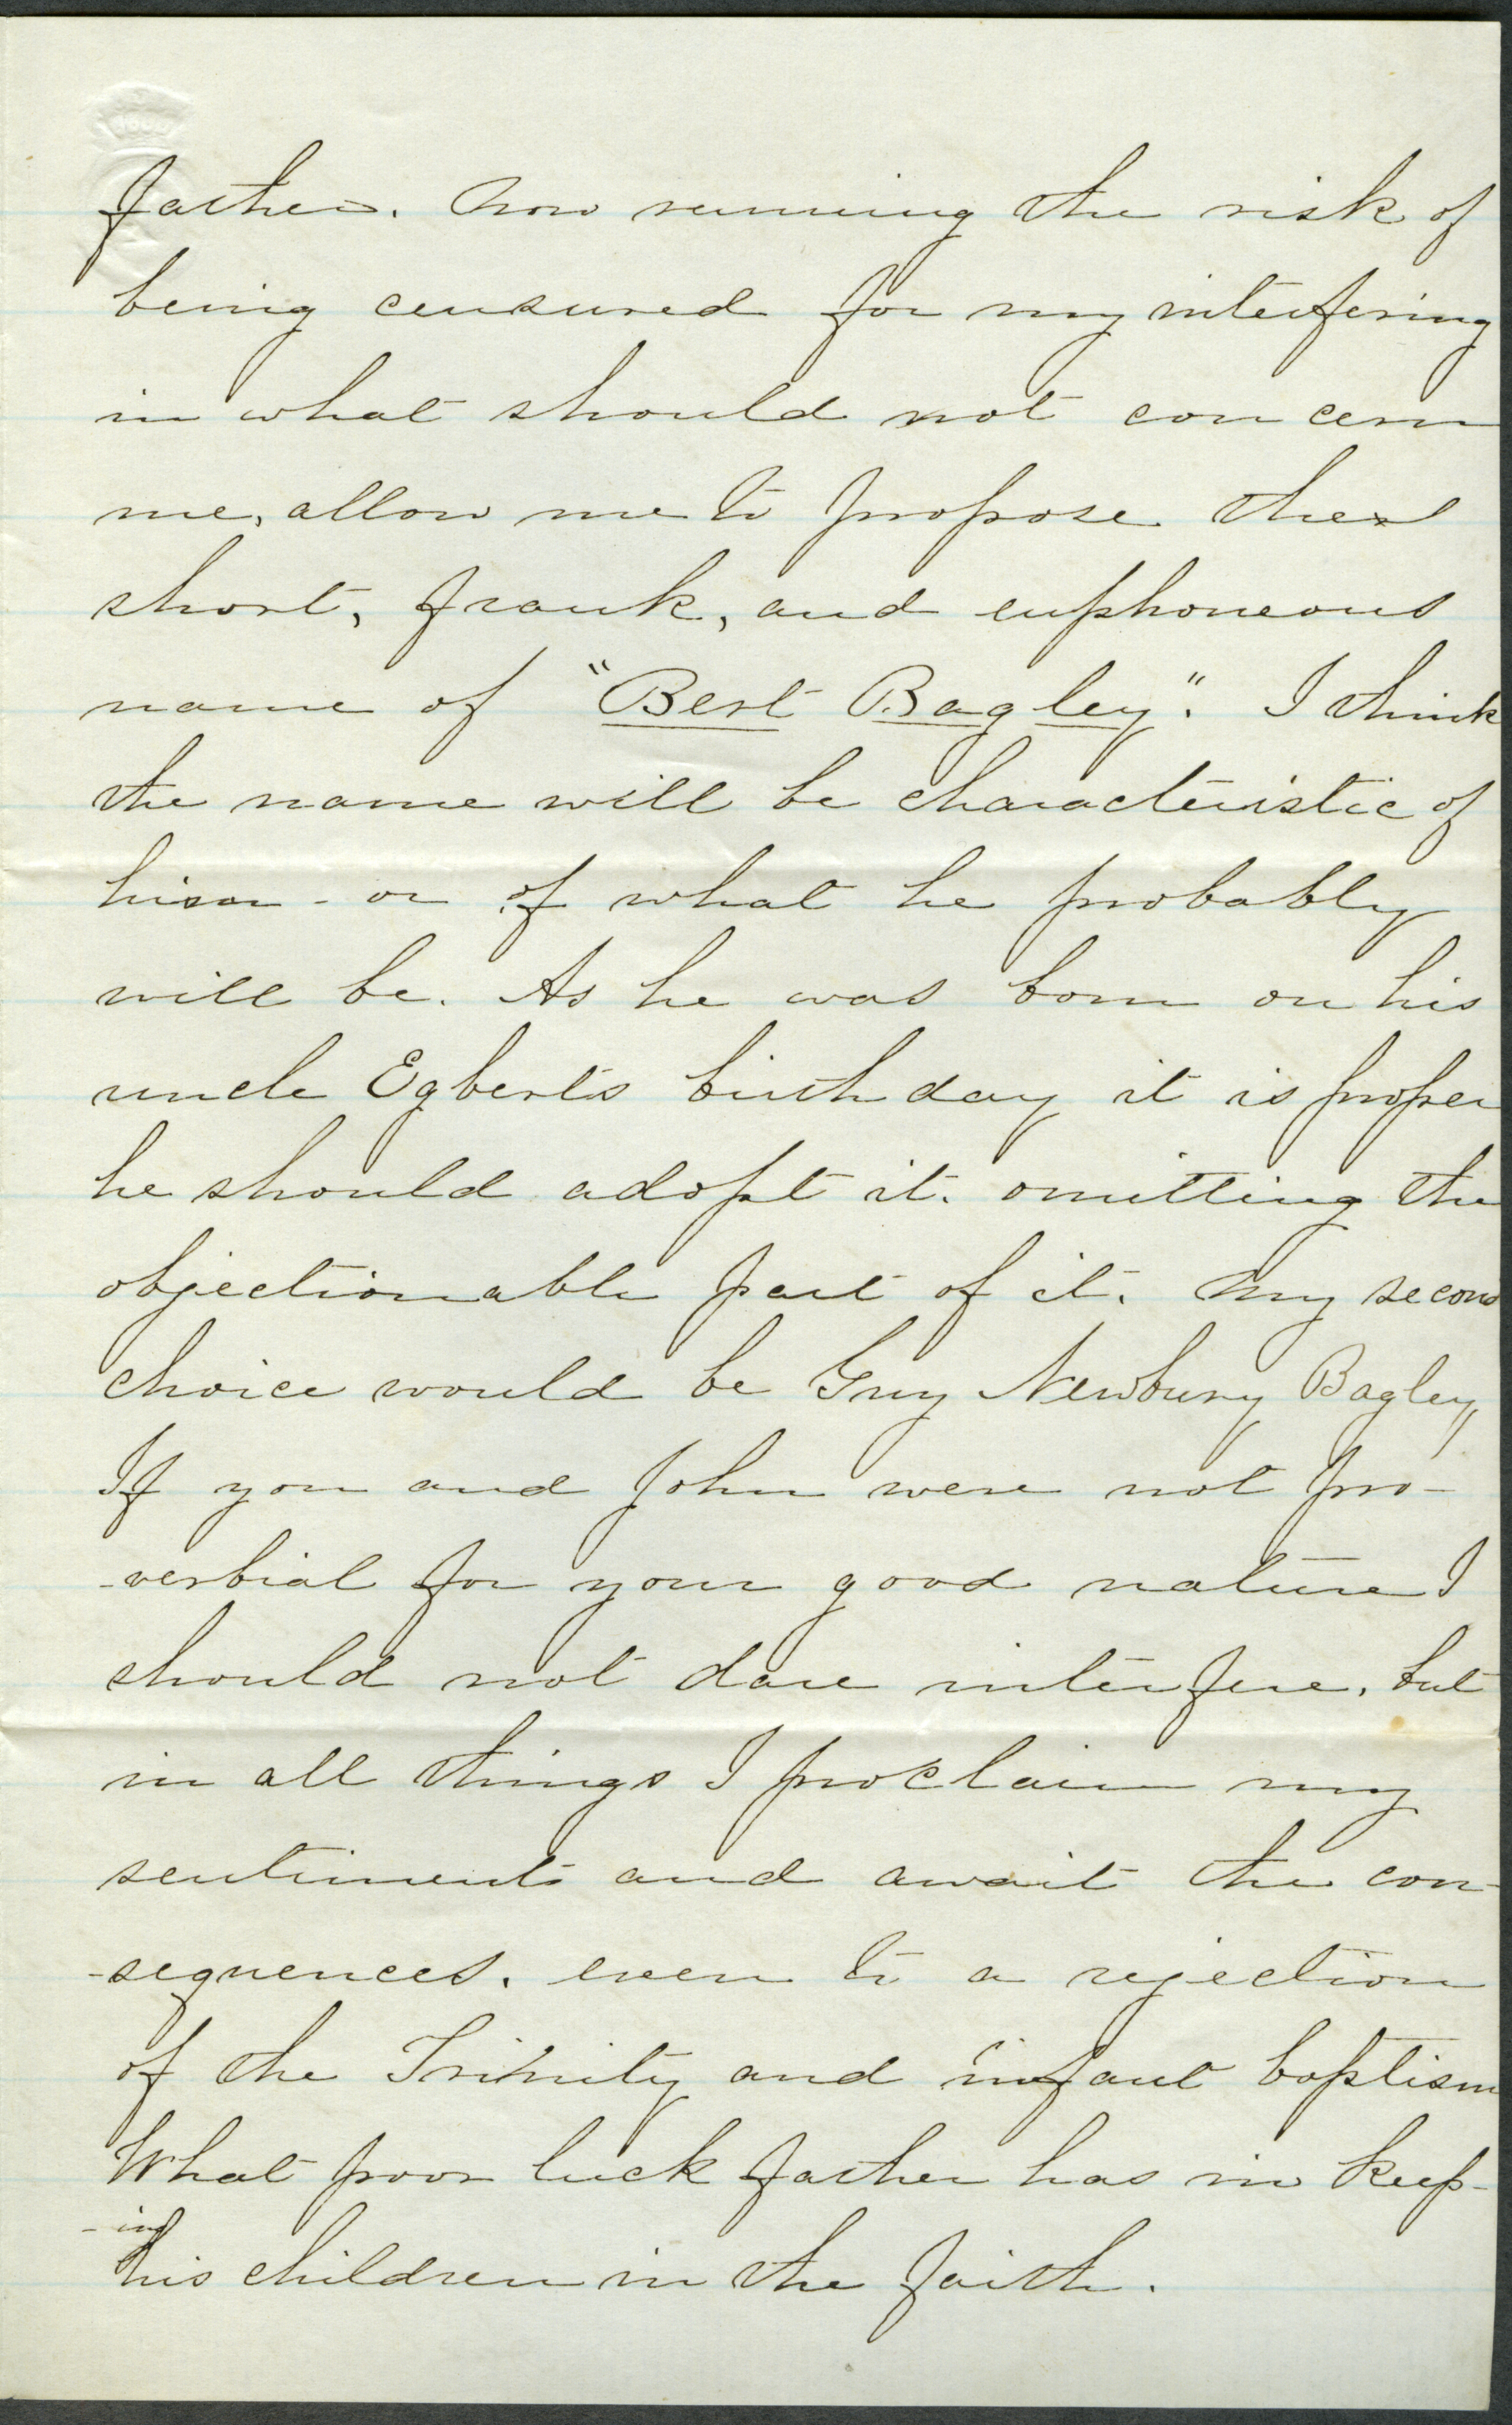 father. Now running the risk of
being censured for my interfering
in what should not concern
me, allow me to propose the
short, frank, and euphoneous
name of "Bert Bagley". I think
the name will be characteristic of
him - or of what he probably
will be. As he was born on his
uncle Egbert's birthday it is proper
he should adopt it. omitting the
objectionable part of it. My second
choice would be Guy Newbury Bagley,
If you and John were not pro-
-verbial for your good nature I
should not dare interfere. but
in all things I proclaim my
sentiments and await the con-
-sequences. even to a rejection
of the Trinity and infant baptism
What poor luck father has in keep-
-ing
his children in the faith.